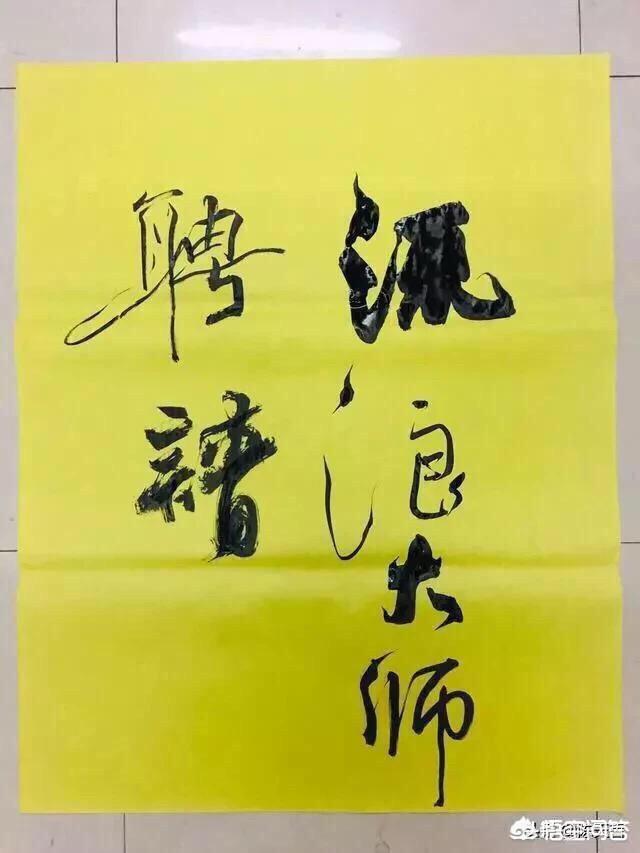 流浪大师
聘請
悟空问答